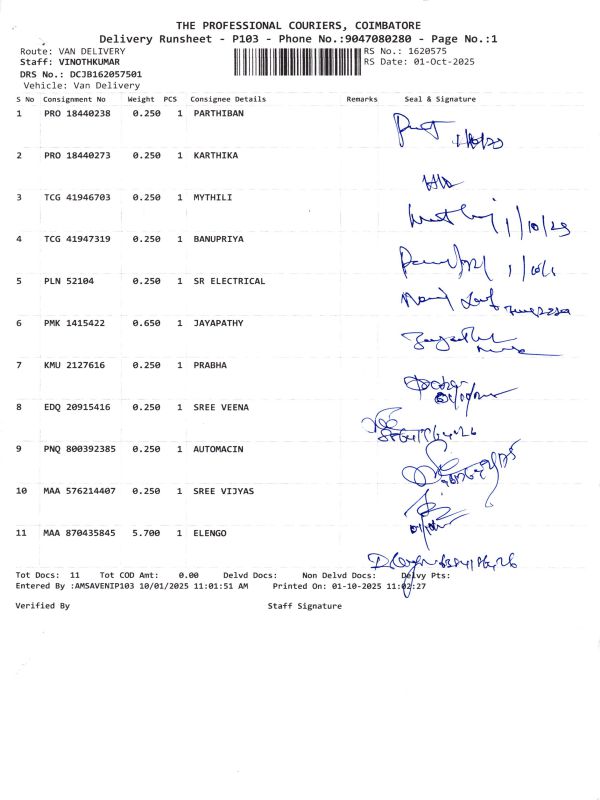 THE PROFESSIONAL COURIERS, COIMBATORE
Delivery Runsheet - P103 - Phone No.:9047080280 - Page No.:1
Route: VAN DELIVERY RS No.: 1620575
Staff: VINOTHKUMAR RS Date: 01-Oct-2025
DRS No.: DCJB162057501
Vehicle: Van Delivery
S No Consignment No Weight PCS Consignee Details Remarks Seal & Signature
1 PRO 18440238 0.250 1 PARTHIBAN
2 PRO 18440273 0.250 1 KARTHIKA
3 TCG 41946703 0.250 1 MYTHILI 1/10/25
4 TCG 41947319 0.250 1 BANUPRIYA
5 PLN 52104 0.250 1 SR ELECTRICAL
6 PMK 1415422 0.650 1 JAYAPATHY
7 KMU 2127616 0.250 1 PRABHA
8 EDQ 20915416 0.250 1 SREE VEENA
9 PNQ 800392385 0.250 1 AUTOMACIN
10 MAA 576214407 0.250 1 SREE VIJYAS
11 MAA 870435845 5.700 1 ELENGO
Tot Docs: 11 Tot COD Amt: 0.00 Delvd Docs: Non Delvd Docs: Delvy Pts:
Entered By :AMSAVENIP103 10/01/2025 11:01:51 AM Printed On: 01-10-2025 11:02:27
Verified By Staff Signature